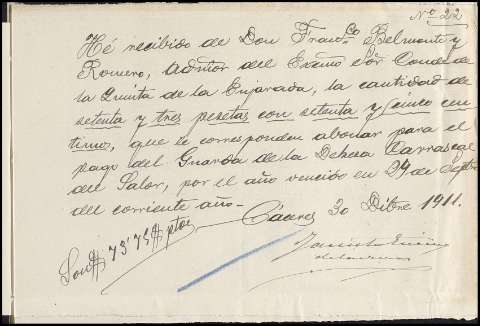 Nº 22
Hé recibido de Don Franco. Belmonte y
Romero, Admtor del Exmo Sor Conde de
la Quinta de la Enjarada, la cantidad de
setenta y tres pesetas con setenta y cinco cen
timos, que le corresponden abonar para el
pago del Guarda de la Dehesa Carrascal
del Salor, por el año vencido en 29 de Septbre
del corriente año-
Cáceres 30 Dibre 1911.
Son # 73'75 # ptas